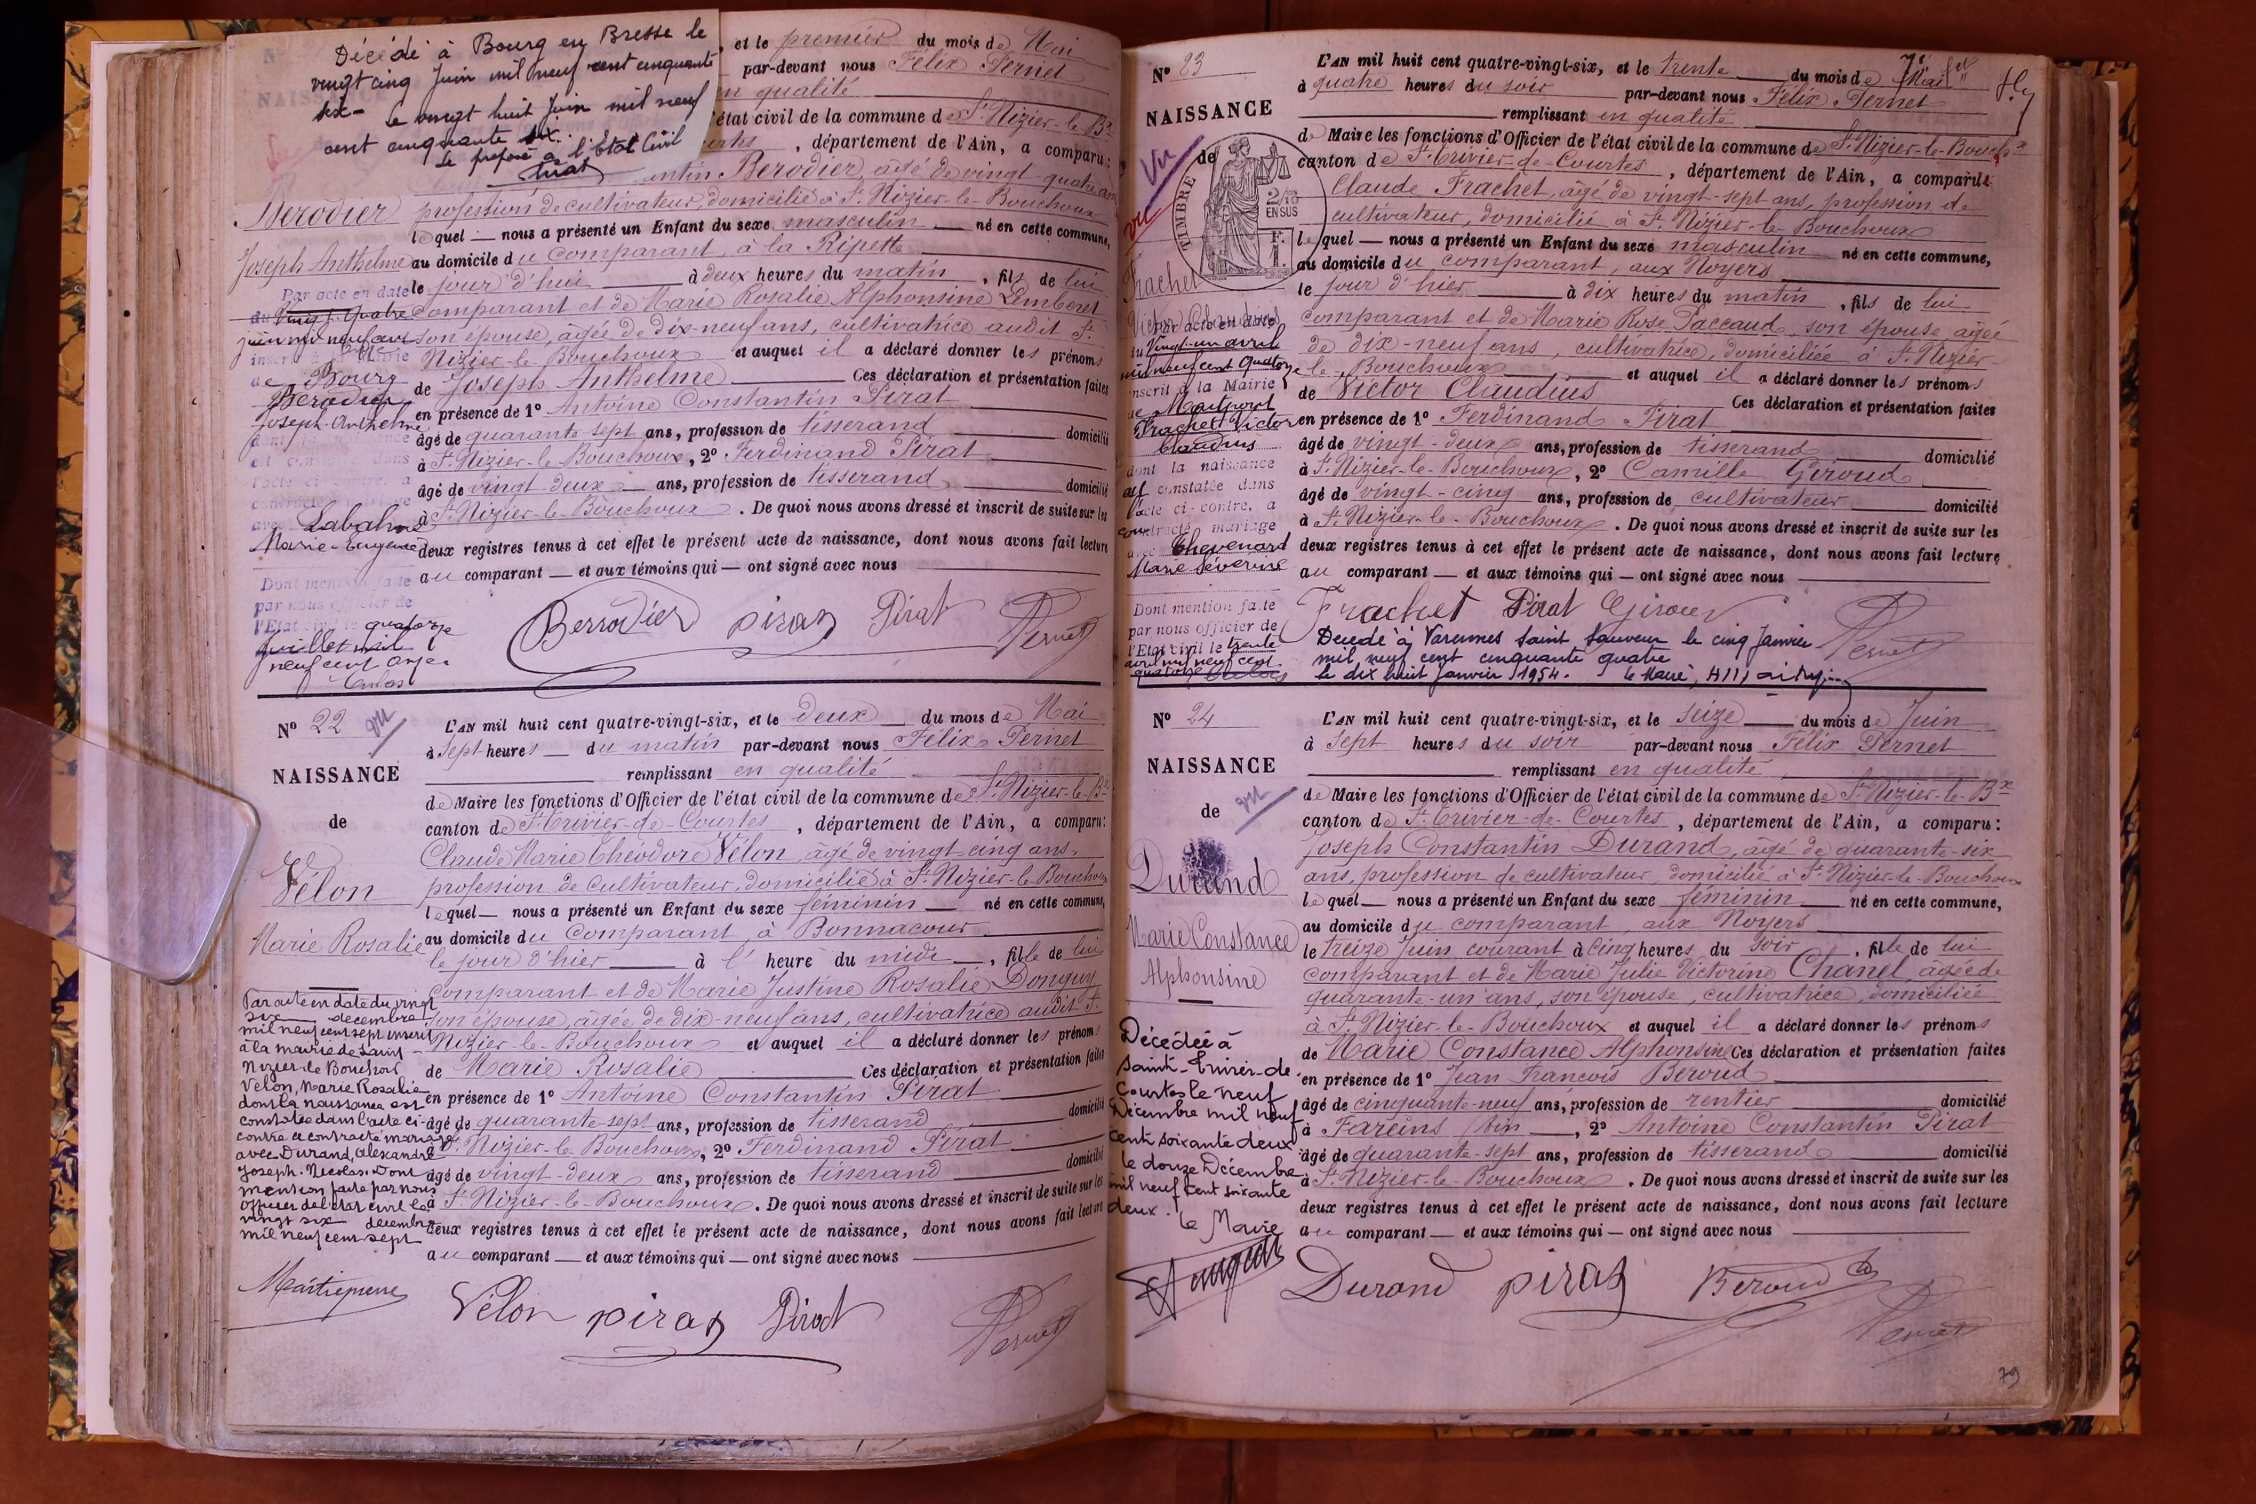 Décédé à Bourg en Bresse le
vingt cinq Juin mil neuf cent cinquante
six - le vingt huit Juin mil neuf
cent cinquante six.
le préposé à l'Etat Civil
, et le premier du mois de Mai
par-devant nous Félix Pernet
en qualité
l'état civil de la commune de St Nizier-le-Bx
, département de l'Ain, a comparu:
Berodier, âgé de vingt-quatre ans
Berodier
profession de cultivateur, domicilié à St Nizier-le-Bouchoux
lequel — nous a présenté un Enfant du sexe masculin — né en cette commune,
Joseph Anthelme
au domicile du comparant, à la Ripette
le jour d'hui à deux heures du matin, fils de lui
comparant et de Marie Rosalie Alphonsine
son épouse, âgée de dix-neuf ans, cultivatrice audit St
Nizier-le-Bouchoux et auquel il a déclaré donner les prénoms
de Joseph Anthelme Ces déclaration et présentation faites
en présence de 1° Antoine Constantin Pirat
âgé de quarante-sept ans, profession de tisserand domicilié
à St Nizier-le-Bouchoux, 2° Ferdinand Pirat
âgé de vingt-deux ans, profession de tisserand domicilié
à St Nizier-le-Bouchoux. De quoi nous avons dressé et inscrit de suite sur les
deux registres tenus à cet effet le présent acte de naissance, dont nous avons fait lecture
au comparant — et aux témoins qui — ont signé avec nous
Par acte en date
du vingt-quatre
juin mil neuf cent
inscrit à la Mairie
de Bourg
Berodier
Joseph-Anthelme
dont la naissance
est constatée dans
l'acte ci-contre, a
contracté mariage
avec Labalme
Marie-Eugénie
Dont mention faite
par nous officier de
l'Etat civil le quatorze
juillet mil
neuf cent onze.
Berrodier piras Pirat Pernet
N° 22 vu
NAISSANCE
de
Vélon
Marie Rosalie
L'AN mil huit cent quatre-vingt-six, et le deux du mois de Mai
à sept heures du matin par-devant nous Félix Pernet
remplissant en qualité
de Maire les fonctions d'Officier de l'état civil de la commune de St Nizier-le-Bx
canton de St Trivier-de-Courtes, département de l'Ain, a comparu:
Claude Marie Théodore Vélon, âgé de vingt-cinq ans,
profession de cultivateur, domicilié à St Nizier-le-Bouchoux
lequel — nous a présenté un Enfant du sexe féminin — né en cette commune,
au domicile du comparant, à Bonnacour
le jour d'hier à l' heure du midi, fille de lui
comparant et de Marie Justine Rosalie Donguy
son épouse, âgée de dix-neuf ans, cultivatrice audit St
Nizier-le-Bouchoux et auquel il a déclaré donner les prénoms
de Marie Rosalie Ces déclaration et présentation faites
en présence de 1° Antoine Constantin Pirat
âgé de quarante-sept ans, profession de tisserand domicilié
à St Nizier-le-Bouchoux, 2° Ferdinand Pirat
âgé de vingt-deux ans, profession de tisserand domicilié
à St Nizier-le-Bouchoux. De quoi nous avons dressé et inscrit de suite sur les
deux registres tenus à cet effet le présent acte de naissance, dont nous avons fait lecture
au comparant — et aux témoins qui — ont signé avec nous
Par acte en date du vingt
six decembre
mil neuf cent sept inscrit
à la mairie de Saint
Nizier le Bouchoux
Velon, Marie Rosalie
dont la naissance est
constatée dans l'acte ci-
contre a contracté mariage
avec Durand, Alexandre
Joseph-Nicolas. Dont
mention faite par nous
officier de l'état civil le
vingt six decembre
mil neuf cent sept
Vélon piras Pirat Pernet
N° 23
NAISSANCE
de
Vu
vu
TIMBRE
2/10
EN SUS
F.
1.
Frachet
Victor Claudius
L'AN mil huit cent quatre-vingt-six, et le trente du mois de Mai
à quatre heures du soir par-devant nous Félix Pernet
remplissant en qualité
de Maire les fonctions d'Officier de l'état civil de la commune de St Nizier-le-Bouchx
canton de St Trivier-de-Courtes, département de l'Ain, a comparu:
Claude Frachet, âgé de vingt-sept ans, profession de
cultivateur, domicilié à St Nizier-le-Bouchoux
lequel — nous a présenté un Enfant du sexe masculin né en cette commune,
au domicile du comparant, aux Noyers
le jour d'hier à dix heures du matin, fils de lui
comparant et de Marie Rose Paccaud, son épouse, âgée
de dix-neuf ans, cultivatrice, domiciliée à St Nizier-
le-Bouchoux et auquel il a déclaré donner les prénoms
de Victor Claudius Ces déclaration et présentation faites
en présence de 1° Ferdinand Pirat
âgé de vingt-deux ans, profession de tisserand domicilié
à St Nizier-le-Bouchoux, 2° Camille Giroud
âgé de vingt-cinq ans, profession de cultivateur domicilié
à St Nizier-le-Bouchoux. De quoi nous avons dressé et inscrit de suite sur les
deux registres tenus à cet effet le présent acte de naissance, dont nous avons fait lecture
au comparant — et aux témoins qui — ont signé avec nous
Par acte en date
du vingt-un avril
mil neuf cent quatorze
inscrit à la Mairie
de
Frachet Victor
Claudius
dont la naissance
est constatée dans
l'acte ci-contre, a
contracté mariage
avec Thevenard
Marie Séverine
Dont mention faite
par nous officier de
l'Etat civil le trente
avril mil neuf cent
quatorze
Frachet Pirat Giroud Pernet
Décédé à Varennes Saint Sauveur le cinq Janvier
mil neuf cent cinquante quatre
le dix huit Janvier 1954. Le Maire,
N° 24
NAISSANCE
de vu
Durand
Marie Constance
Alphonsine
L'AN mil huit cent quatre-vingt-six, et le seize du mois de Juin
à sept heures du soir par-devant nous Félix Pernet
remplissant en qualité
de Maire les fonctions d'Officier de l'état civil de la commune de St Nizier-le-Bx
canton de St Trivier-de-Courtes, département de l'Ain, a comparu:
Joseph Constantin Durand, âgé de quarante-six
ans, profession de cultivateur domicilié à St Nizier-le-Bouchoux
lequel — nous a présenté un Enfant du sexe féminin né en cette commune,
au domicile du comparant, aux Noyers
le treize Juin courant à cinq heures du soir, fille de lui
comparant et de Marie Julie Victorine Chanel, âgée de
quarante-un ans, son épouse, cultivatrice, domiciliée
à St Nizier-le-Bouchoux et auquel il a déclaré donner les prénoms
de Marie Constance Alphonsine Ces déclaration et présentation faites
en présence de 1° Jean François Beroud
âgé de cinquante-neuf ans, profession de rentier domicilié
à Fareins Ain, 2° Antoine Constantin Pirat
âgé de quarante-sept ans, profession de tisserand domicilié
à St Nizier-le-Bouchoux. De quoi nous avons dressé et inscrit de suite sur les
deux registres tenus à cet effet le présent acte de naissance, dont nous avons fait lecture
au comparant — et aux témoins qui — ont signé avec nous
Décédée à
Saint-Trivier-de-
Courtes le neuf
Décembre mil neuf
cent soixante deux
le douze Décembre
mil neuf cent soixante
deux. Le Maire
Durand piras Beroud Pernet
79